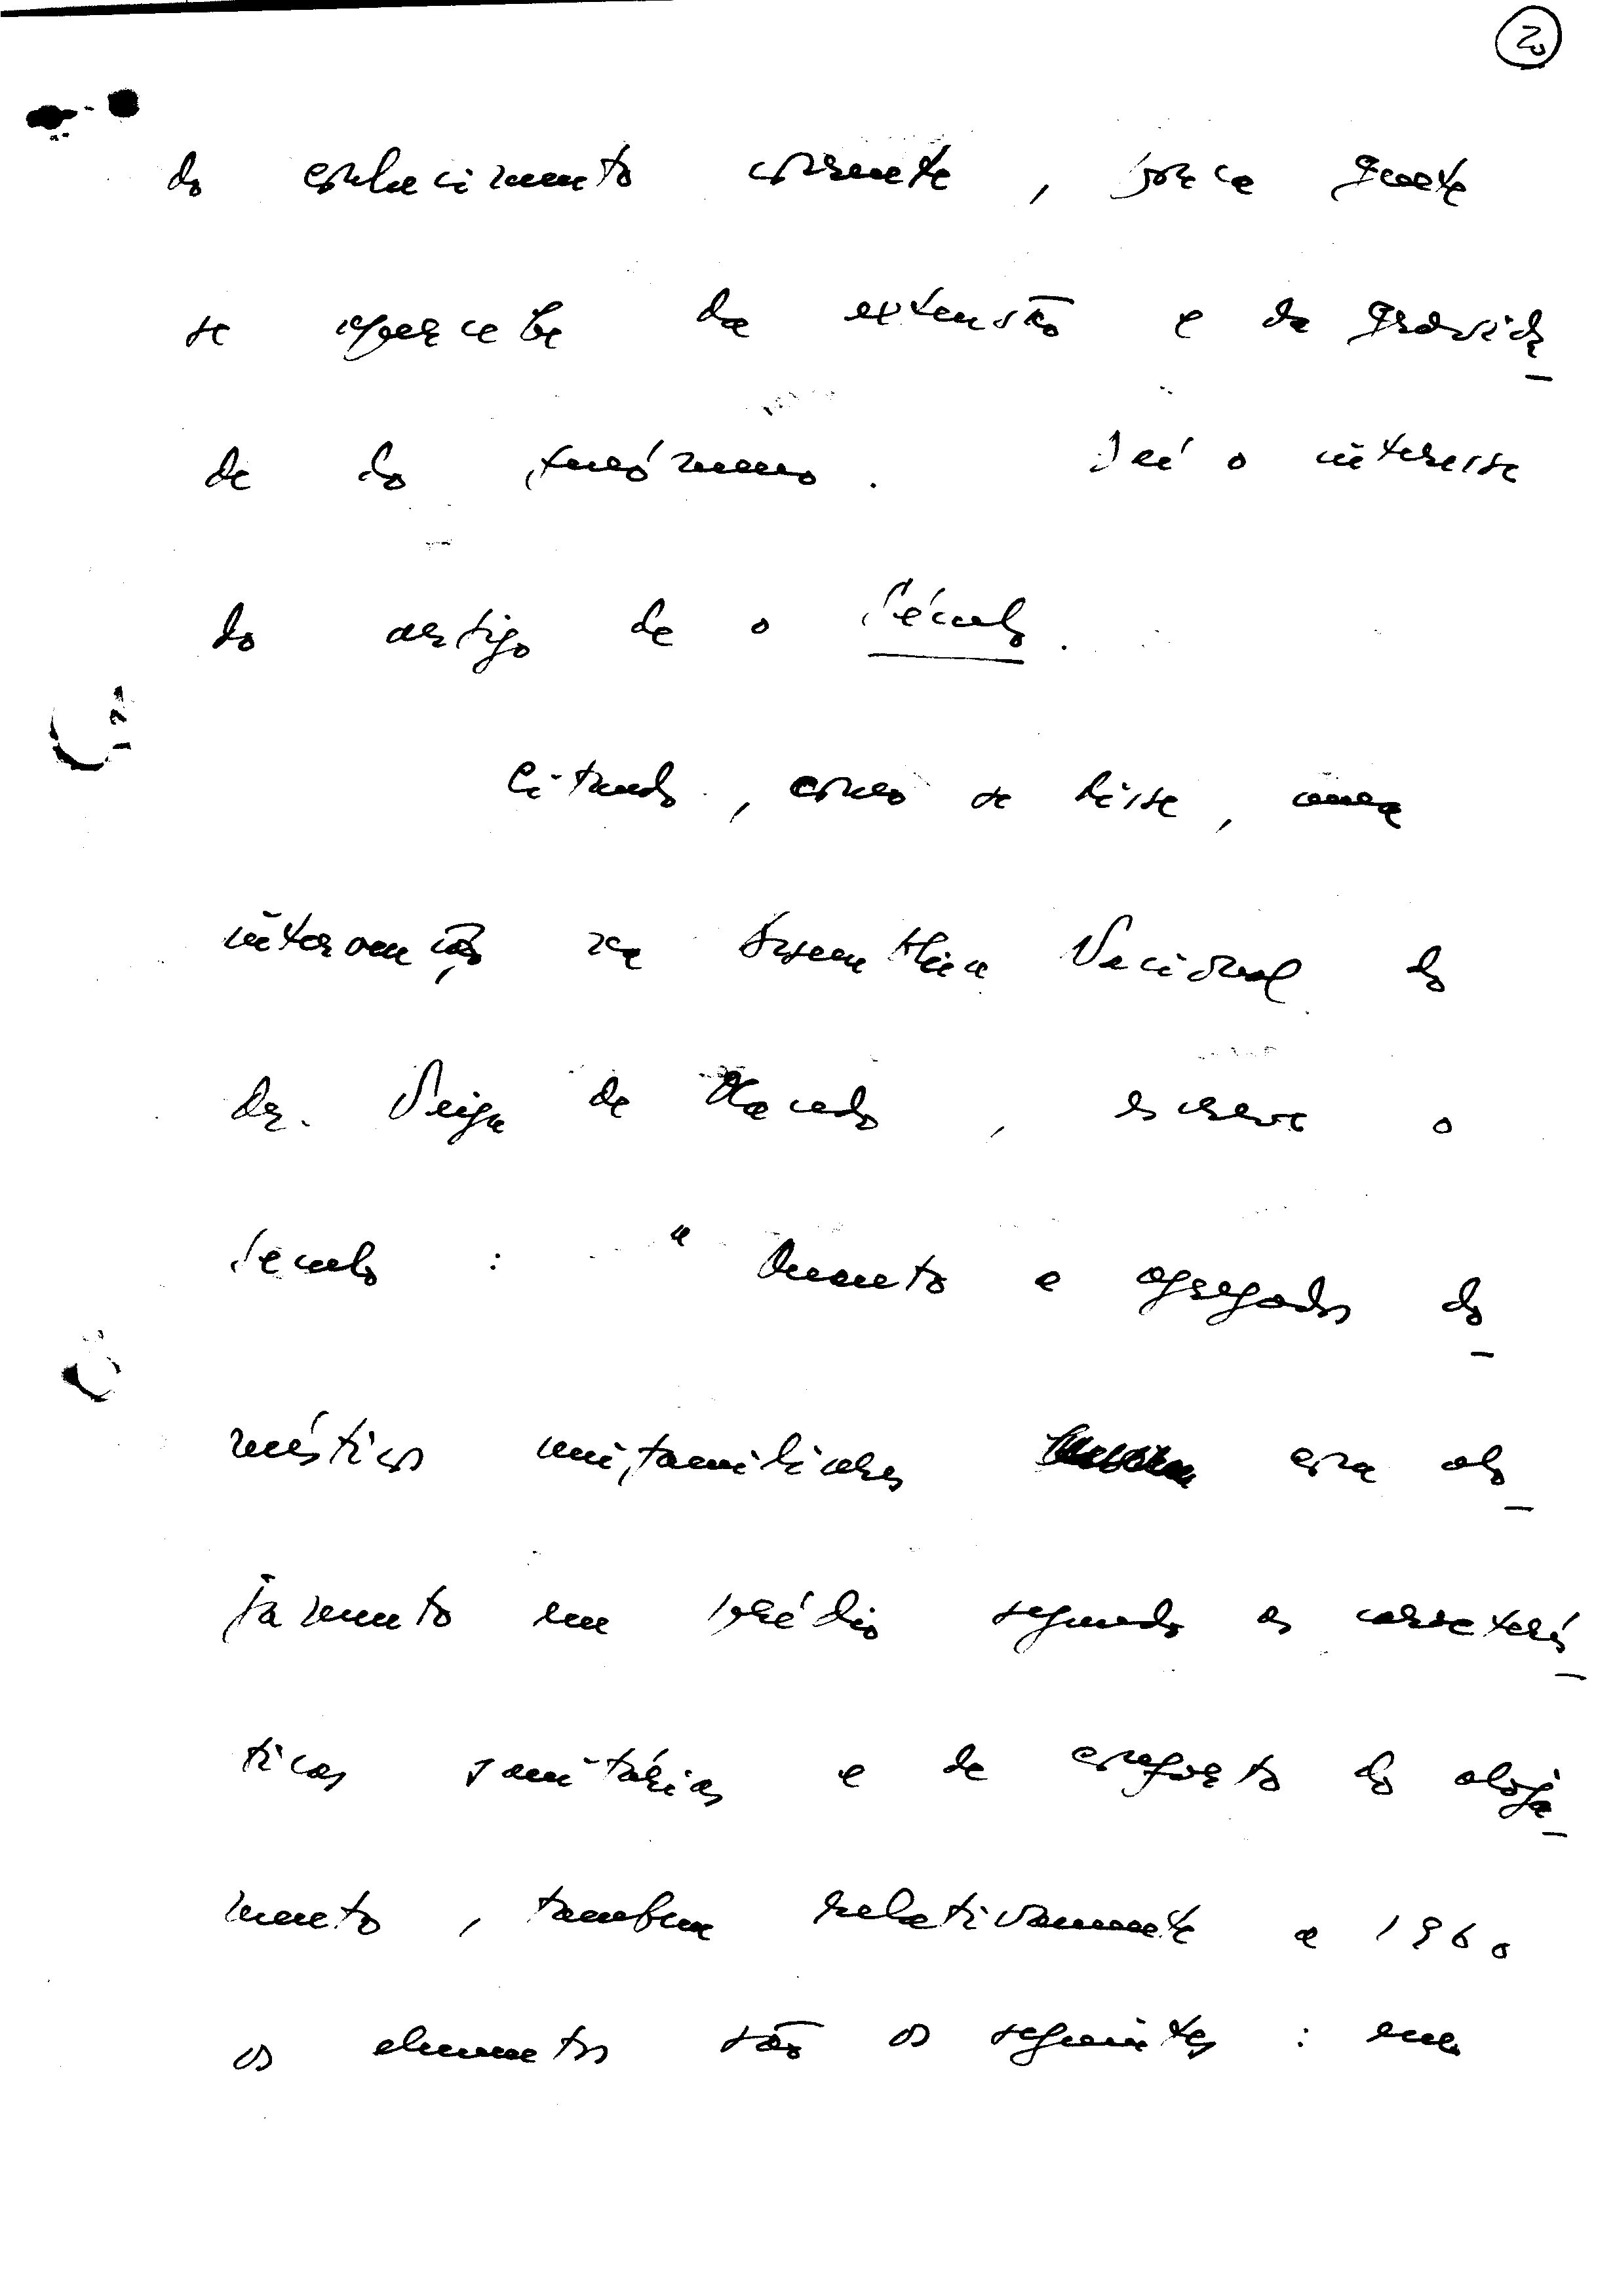 20
do conhecimento corrente, pouca gente
se apercebe da extensão e da gravida_
de do fenómeno. Daí o interesse
do artigo de o Século.
Citando, como se disse, uma
intervenção na Assembleia Nacional do
dr. Veiga de Macedo, escreve o
Seculo: "Quanto a agregados do_
mésticos unifamiliares com alo_
jamento em prédio segundo as caracterís_
ticas sanitárias e de conforto do aloja_
mento, tambem relativamente a 1960
os elementos são os seguintes: em